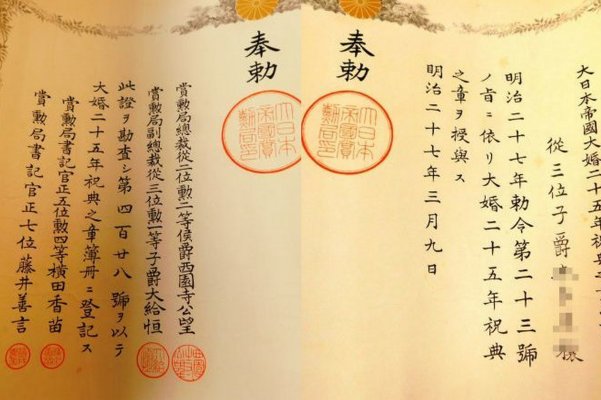 大日本帝國大婚二十五年祝典
從三位子爵
明治二十七年勅令第二十三號
ノ旨ニ依リ大婚二十五年祝典
之章ヲ授與ス
明治二十七年三月九日
奉勅
大日本
帝國賞
勲局印
奉勅
大日本
帝國賞
勲局印
賞勲局總裁從二位勲二等侯爵西園寺公望
賞勲局副總裁從三位勲一等子爵大給恒
此證ヲ勘査シ第四百廿八號ヲ以テ
大婚二十五年祝典之章簿册ニ登記ス
賞勲局書記官正五位勲四等横田香苗
賞勲局書記官正七位藤井善言